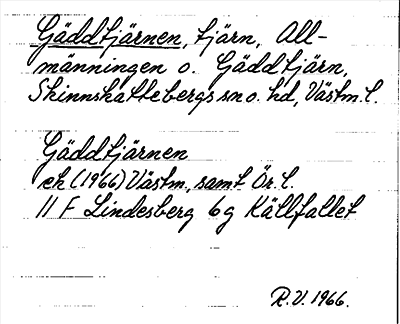 Gäddtjärnen, tjärn, All-
männingen o. Gäddtjärn,
Skinnskattebergs sn o. hd, Västm. l.
Gäddtjärnen
ek (1966) Västm., samt Ör. l.
11 F Lindesberg 6g Källfallet
R.V. 1966.